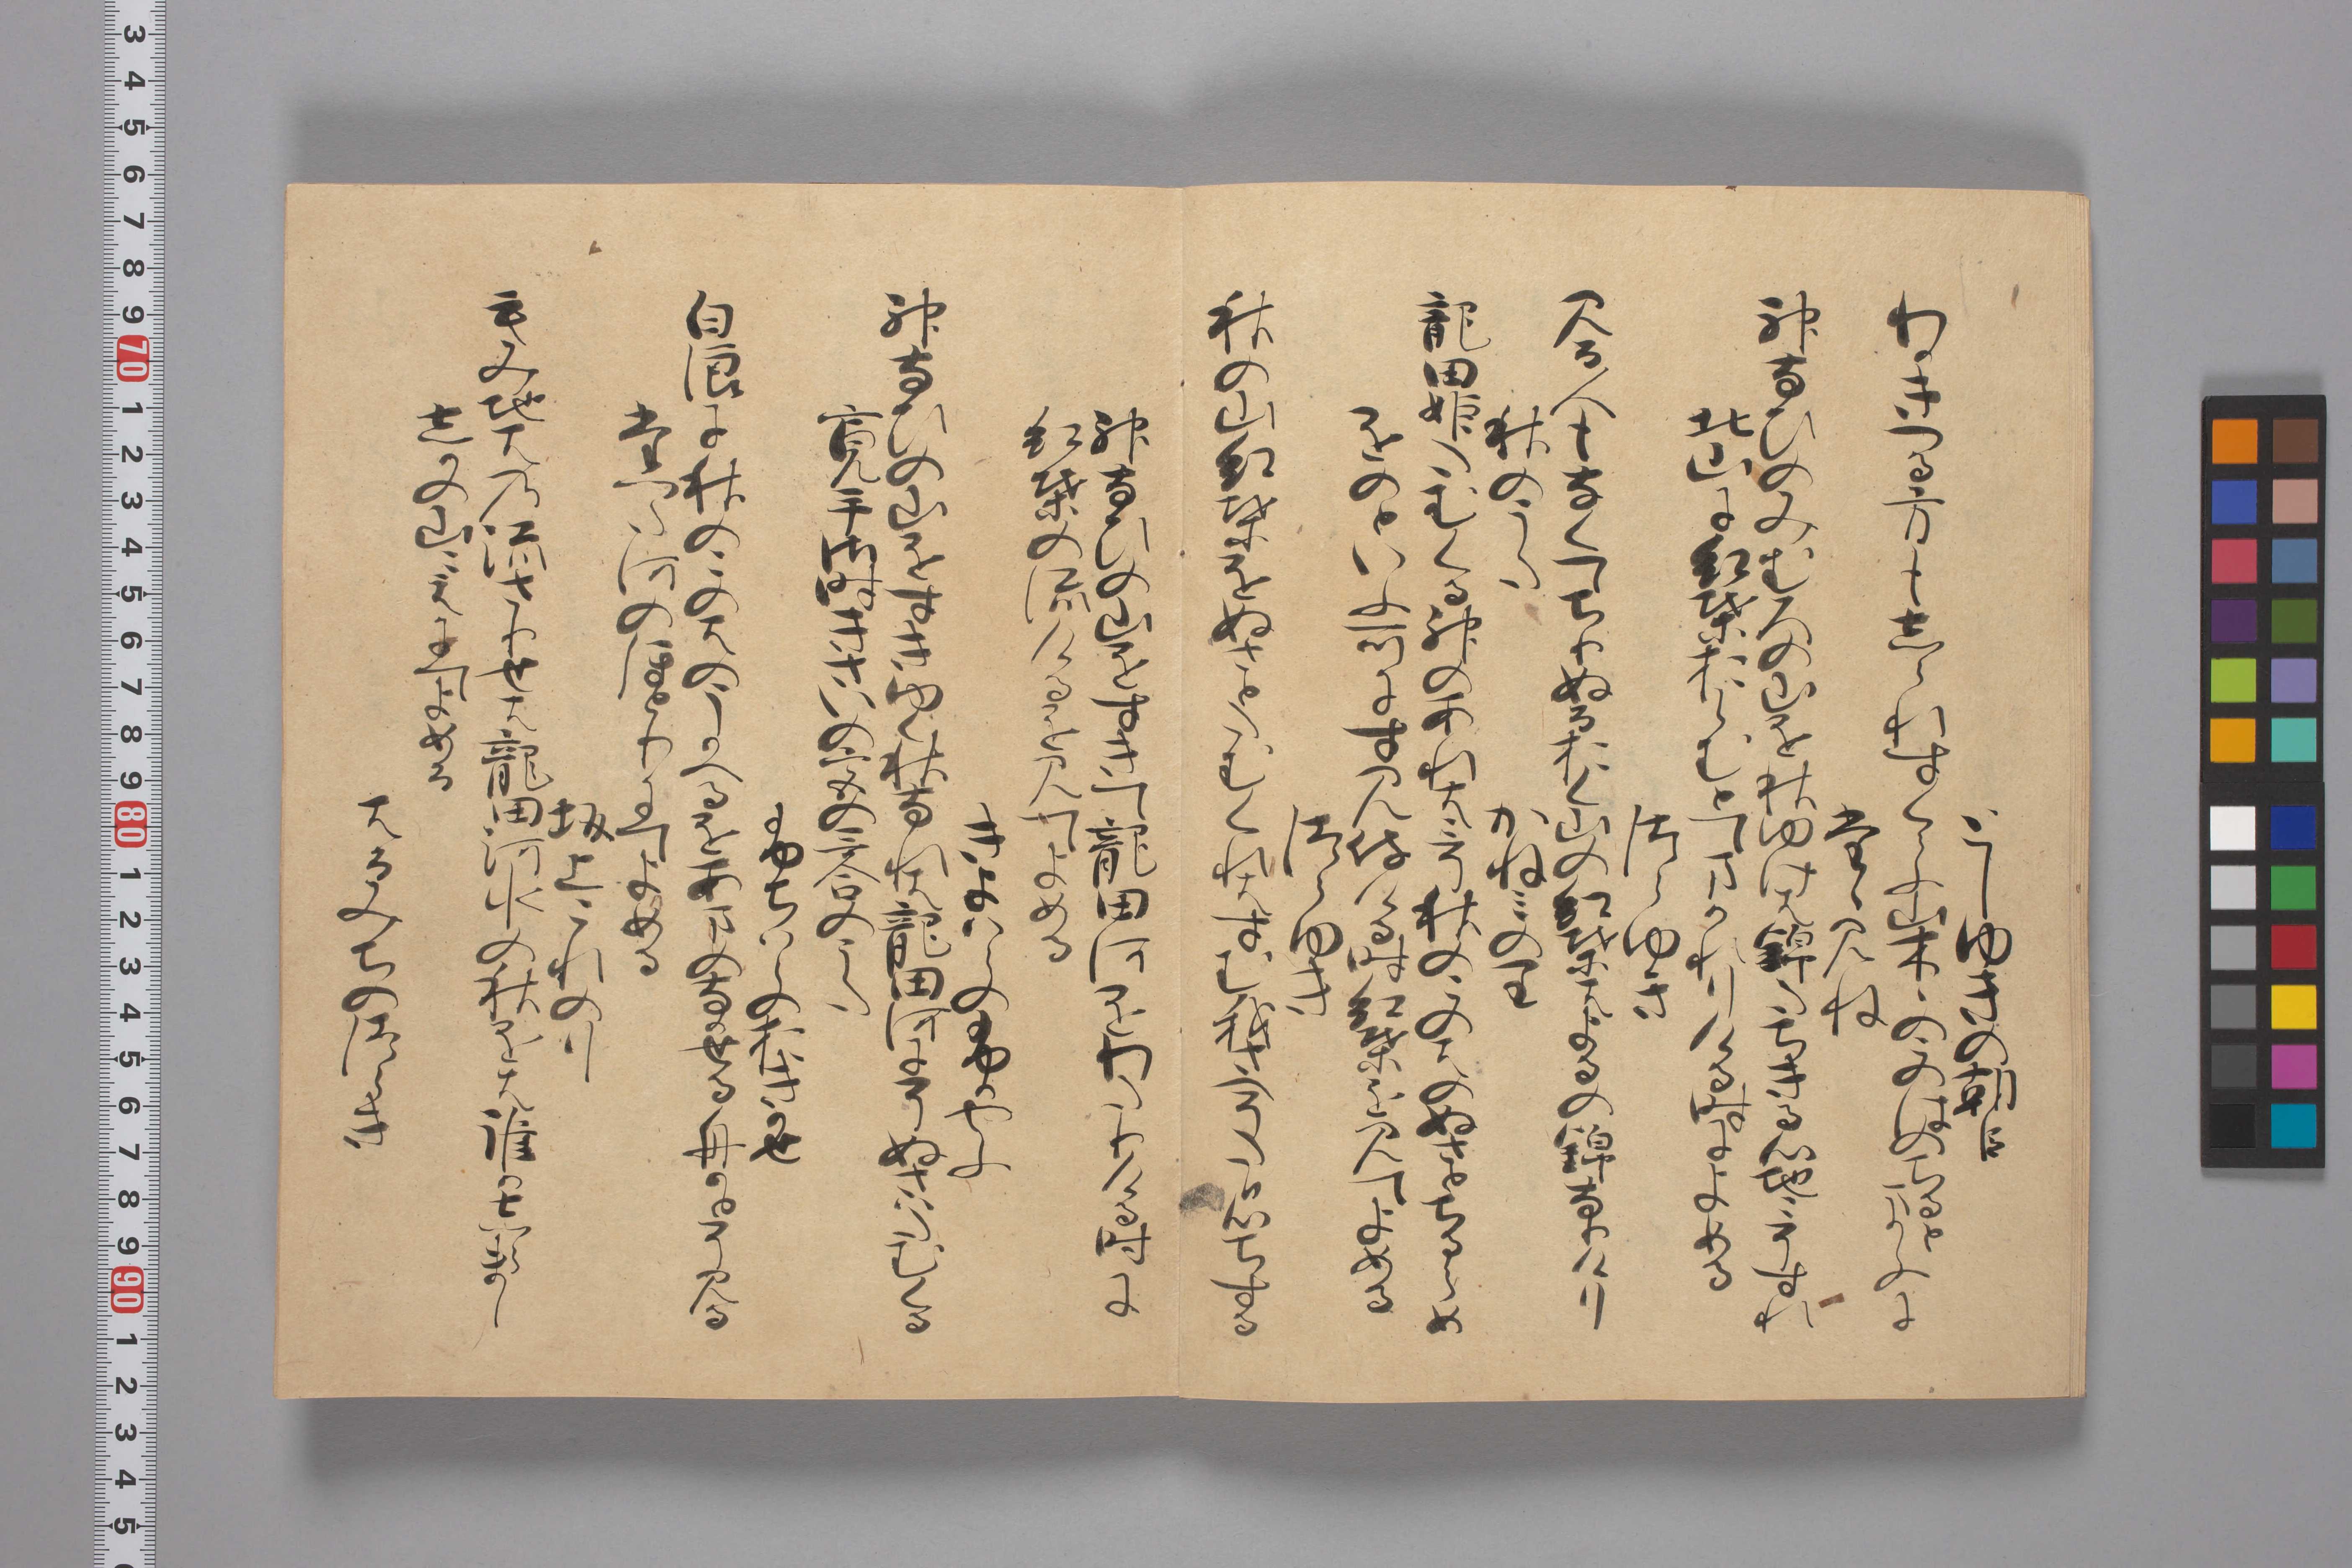 としゆきの朝臣
わかきつる方もしられすくらふ山木〻のこのはのちるとまかふに
たゝみね
神なひのみむろの山を秋ゆけは錦たちきる心地こそすれ
北山に紅葉おらむとてまかれりける時によめる
つらゆき
見る人もなくてちりぬるおく山の紅葉はよるの錦なりけり
秋のうた
かねみの王
龍田姫たむくる神のあれはこそ秋のこのはのぬさとちるらめ
をのといふ所にすみ侍ける時紅葉を見てよめる
つらゆき
秋の山紅葉をぬさとたむくれはすむ我さへそたひ心ちする
神なひの山をすきて龍田河をわたりける時に
紅葉のなかれけるを見てよめる
きよはらのふかやふ
神なひの山をすき行秋なれは龍田河にそぬさはたむくる
寛平御時きさいの宮の哥合のうた
ふちはらのおきかせ
白浪に秋のこのはのうかへるをあまのなかせる舟かとそ見る
たつた河のほとりにてよめる
坂上これのり
もみち葉のなかれさりせは龍田河水の秋をは誰かしらまし
しかの山こえにてよめる
はるみちのつらき